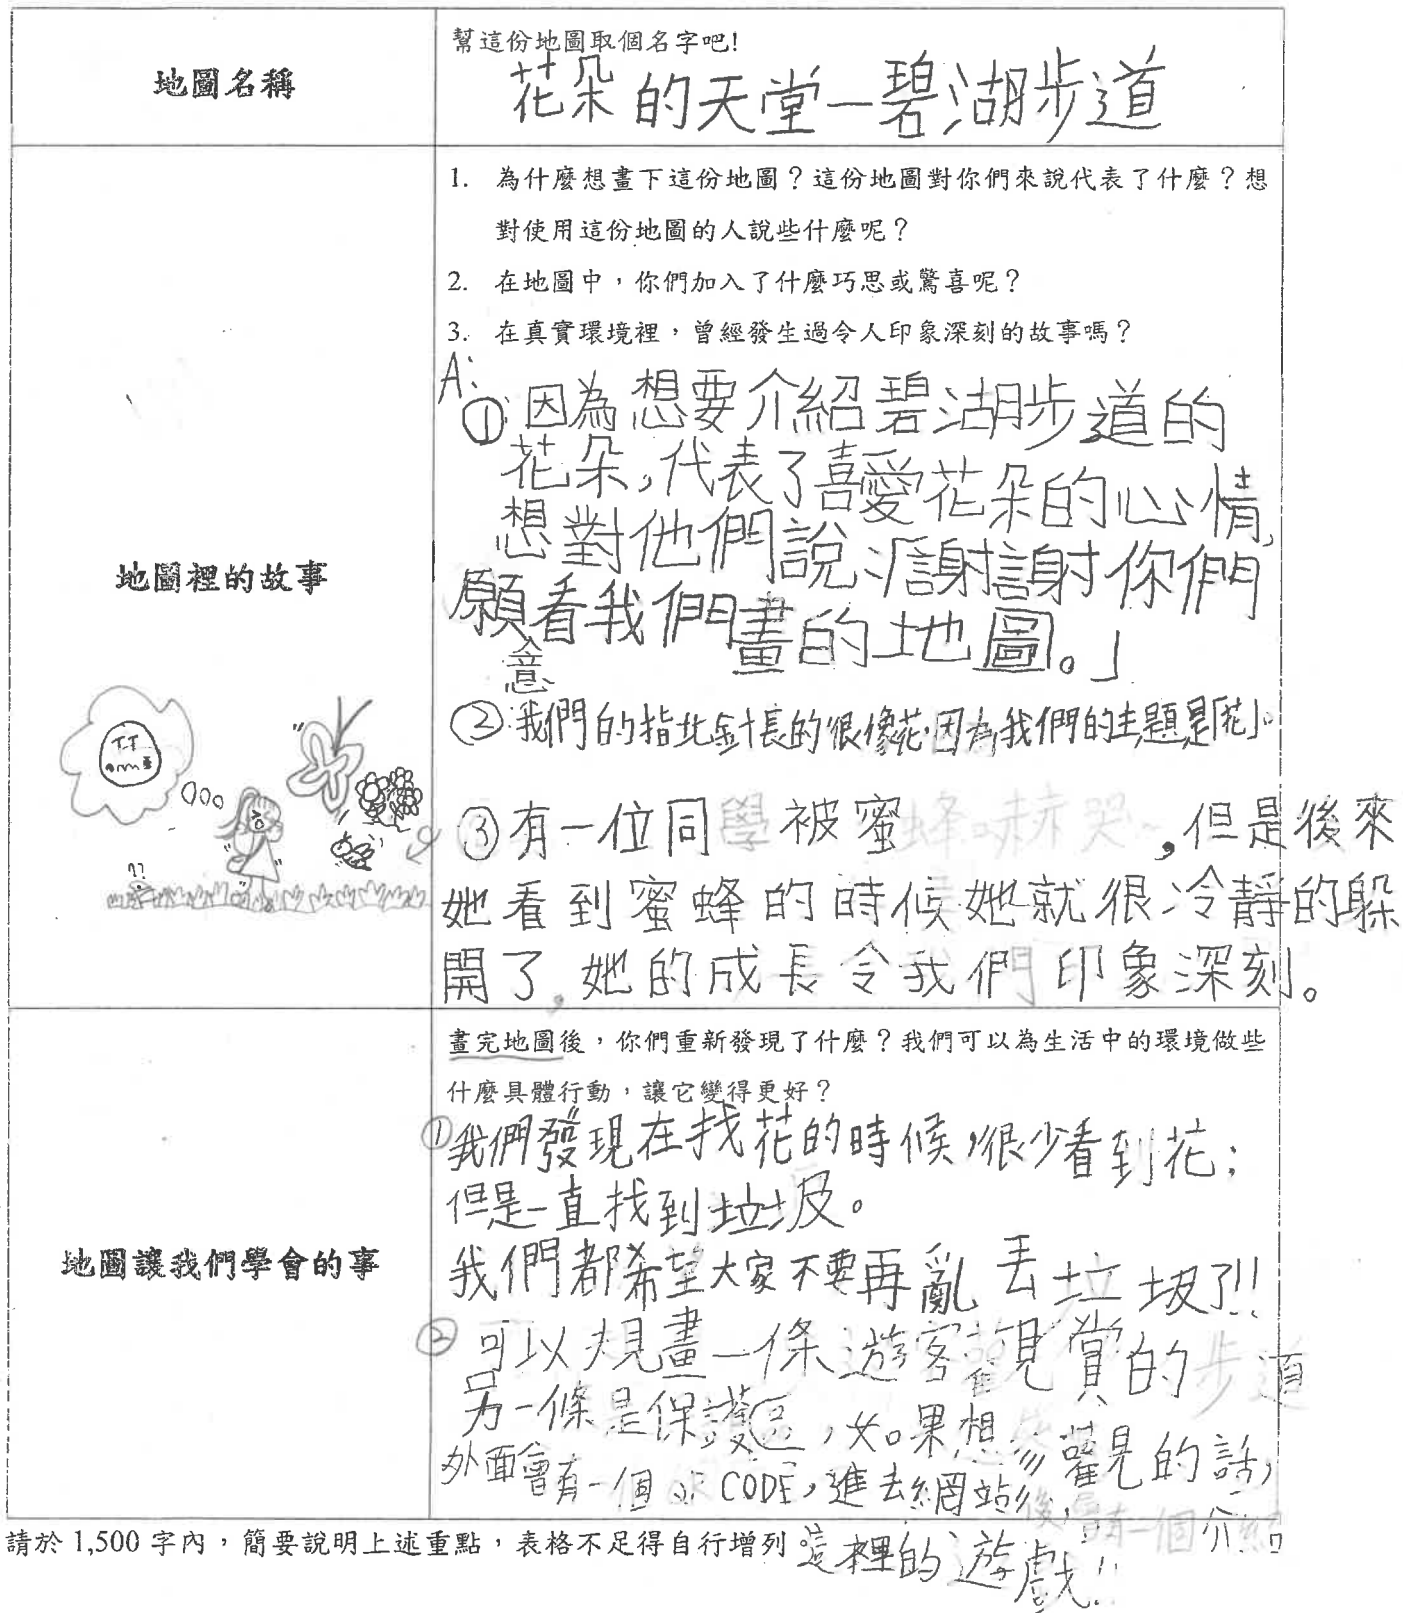 地圖名稱
幫這份地圖取個名字吧!
花朵的天堂—碧湖步道
地圖裡的故事
1. 為什麼想畫下這份地圖？這份地圖對你們來說代表了什麼？想
對使用這份地圖的人說些什麼呢？
2. 在地圖中，你們加入了什麼巧思或驚喜呢？
3. 在真實環境裡，曾經發生過令人印象深刻的故事嗎？
A:
①:因為想要介紹碧湖步道的
花朵,代表了喜愛花朵的心情,
想對他們說:「謝謝你們
願意看我們畫的地圖。」
②:我們的指北針長的很像花,因為我們的主題是「花」。
③有一位同學被蜜蜂嚇哭,但是後來
她看到蜜蜂的時候她就很冷靜的躲
開了,她的成長令我們印象深刻。
地圖讓我們學會的事
畫完地圖後，你們重新發現了什麼？我們可以為生活中的環境做些
什麼具體行動，讓它變得更好？
①我們發現在找花的時候,很少看到花;
但是一直找到垃圾。
我們都希望大家不要再亂丟垃圾了!!
②可以規畫一條遊客觀賞的步道
另一條是保護區,如果想參觀的話,
外面會有一個QR CODE,進去網站後,會有一個介紹
這裡的遊戲!!
請於 1,500 字內，簡要說明上述重點，表格不足得自行增列。